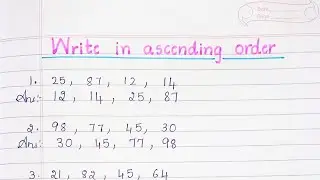 Write in ascending order
1. 25, 87, 12, 14
Ans: 12, 14, 25, 87
2. 98, 77, 45, 30
Ans: 30, 45, 77, 98
3. 21, 82, 45, 64